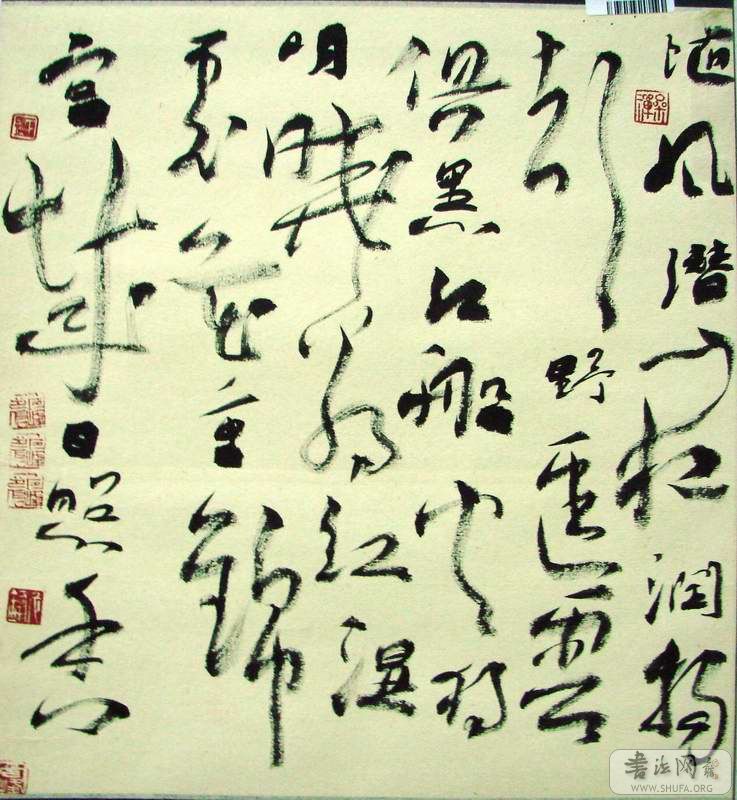 随风潜入夜润物
野迳雲
俱黑江船火独
明晓看红湿
处花重錦
官城日照香
书法网
WWW.SHUFA.ORG